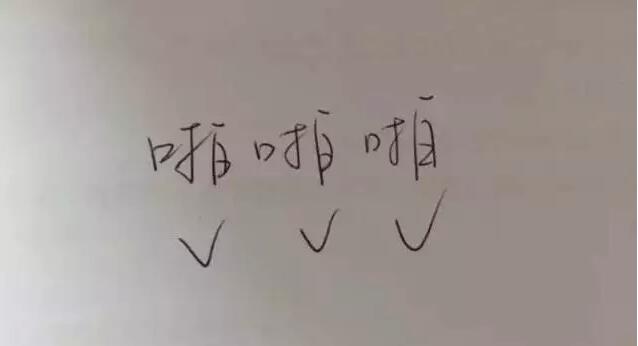 啪啪啪
✓ ✓ ✓